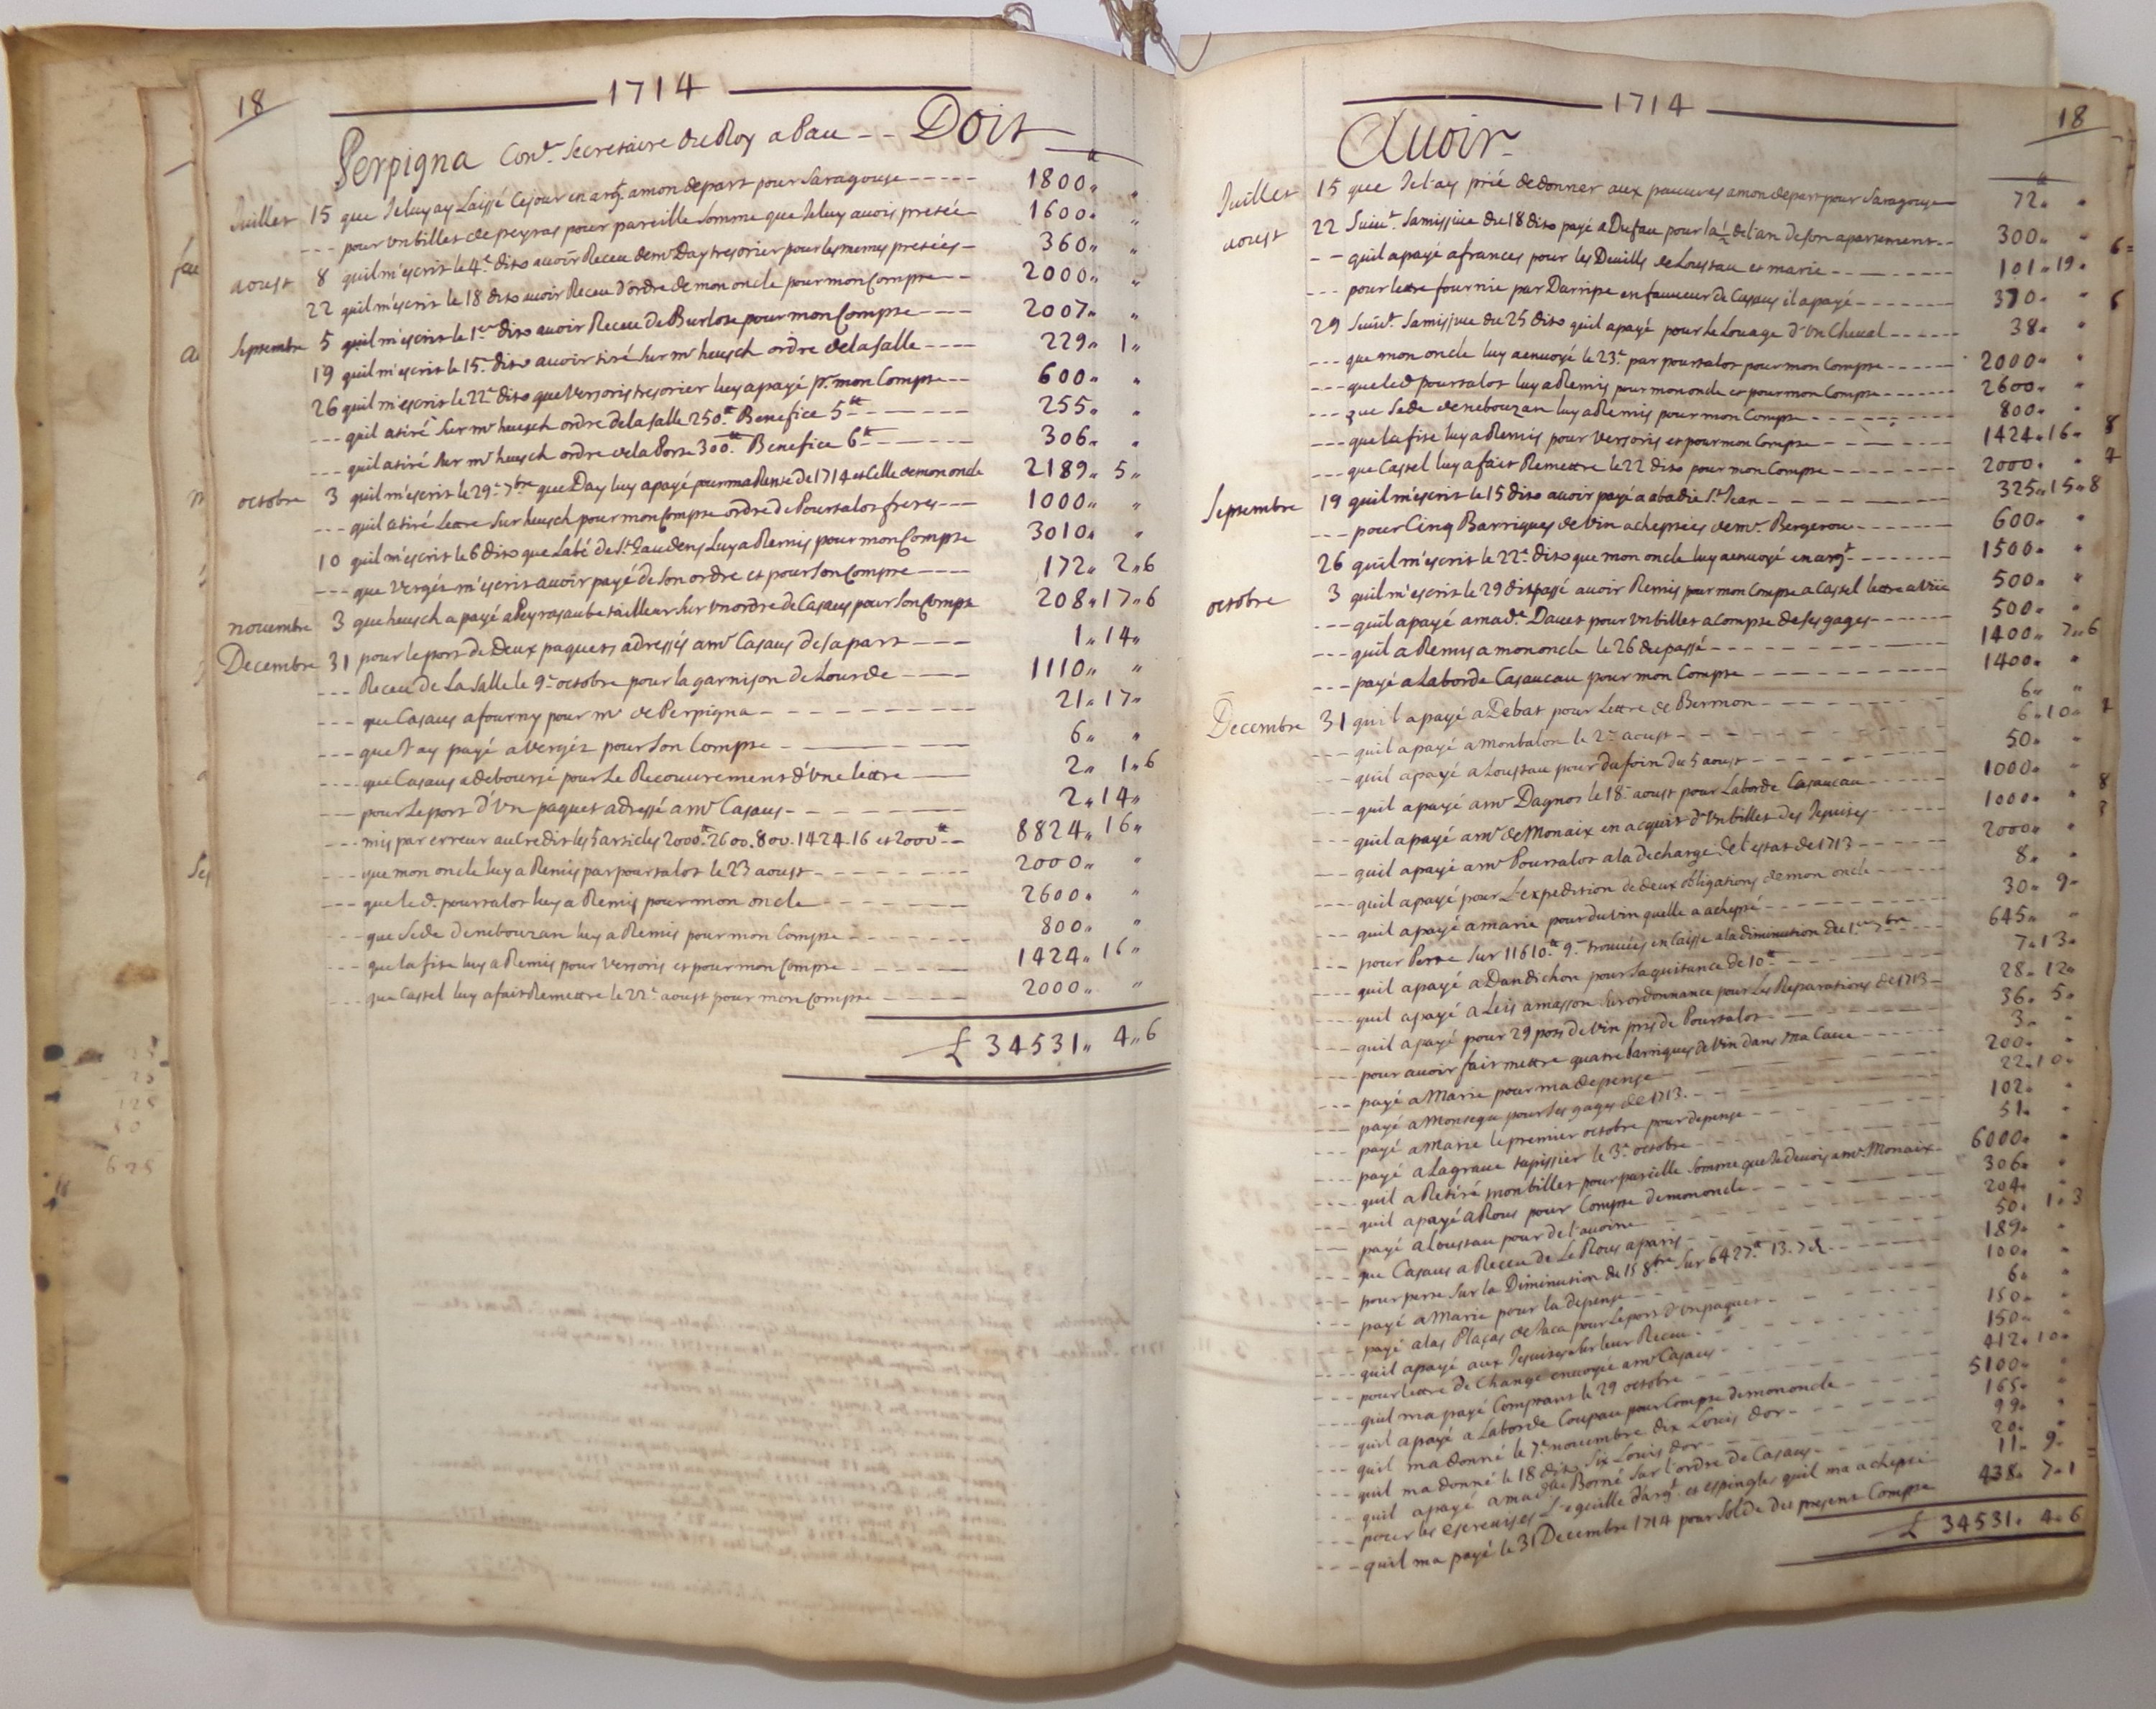 18
1714
Perpigna Con.r Secretaire du Roy a Pau -- Doit
Juillet 15 que Je luy ay Laissé Ce jour en arg.t a mon depart pour Saragouse ----- 1800 " "
--- pour un billet de peyras pour pareille Somme que Je luy avois pretée 1600 " "
aoust 8 quil m'escrit le 4.e dito avoir Receu de m.r Day tresorier pour les memes pretées - 360 " "
22 quil m'escrit le 18 dito avoir Receu d'ordre de mon oncle pour mon Compte -- 2000 " "
Septembre 5 quil m'escrit le 1.er dito avoir Receu de Burlote pour mon Compte ---- 2007 " "
19 quil m'escrit le 15.e dito avoir tiré Sur m.r heusch ordre de la Salle ---- 229 " 1 "
26 quil m'escrit le 22.e dito que Versoris tresorier luy a payé p.r mon Compte -- 600 " "
--- quil a tiré Sur m.r heusch ordre de la Salle 250.tt Benefice 5.tt ------- 255 " "
--- quil a tiré Sur m.r heusch ordre de la Porte 300.tt Benefice 6.tt ------- 306 " "
octobre 3 quil m'escrit le 29.e 7.bre que Day luy a payé pour ma Rente de 1714 et Celle de mon oncle 2189 " 5 "
--- quil a tiré Lettre Sur heusch pour mon Compte ordre de Poursalot freres --- 1000 " "
10 quil m'escrit le 6 dito que Labé de S.t Gaudens Luy a Remis pour mon Compte 3010 " "
--- que Vergés m'escrit avoir payé de Son ordre et pour Son Compte ---- 172 " 2 " 6
novembre 3 que heusch a payé a Peyrasaube tailleur Sur un ordre de Casaus pour Son Compte 208 " 17 " 6
Decembre 31 pour le port de Deux paquets adressés a m.r Casaus de Sa part --- 1 " 14 "
--- Receu de La Salle le 9.e octobre pour la garnison de Lourde ---- 1110 " "
--- que Casaus a fourny pour m.r de Perpigna - - - - - - - - 21 " 17 "
--- que J'ay payé a Vergés pour Son Compte - ———— 6 " "
--- que Casaus a deboursé pour Le Recouvrement d'Une lettre —— 2 " 1 " 6
--- pour Le port d'Un paquet adressé a m.r Casaus - - - - 2 " 14 "
--- mis par erreur au Credit les 5 articles 2000.tt 2600. 800. 1424.16 et 2000.tt -- 8824 " 16 "
--- que mon oncle luy a Remis par poursalot le 23 aoust - - - - - - 2000 " "
--- que le d. poursalot luy a Remis pour mon oncle - - - - - - 2600 " "
--- que Sede de nebouzan luy a Remis pour mon Compte - - - - - - 800 " "
--- que lafite luy a Remis pour Versoris et pour mon Compte - - - - - - 1424 " 16 "
--- que Castel luy a fait Remettre le 22.e aoust pour mon Compte - - - - - 2000 " "
£ 34531 " 4 " 6
1714
18
Avoir
Juillet 15 que Je l'ay prié de donner aux pauvres a mon depart pour Saragouse 72 " "
aoust 22 Suiv.t Sa missive du 18 dito payé a Dufau pour la ½ de l'an de Son apartement -- 300 " "
-- quil a payé a frances pour les Deuills de Loustau et marie - - - - - 101 " 19 "
--- pour lettre fournie par Darripe en faveur de Casaus il a payé ------ 370 " "
29 Suiv.t Sa missive du 25 dito quil a payé pour Le Louage d'Un Cheval ----- 38 " "
--- que mon oncle luy a envoyé le 23.e par poursalot pour mon Compte ------ 2000 " "
--- que le d. poursalot luy a Remis pour mon oncle et pour mon Compte ------ 2600 " "
--- que Sede de nebouzan luy a Remis pour mon Compte - - - - - - 800 " "
--- que lafite luy a Remis pour Versoris et pour mon Compte - - ——— 1424 " 16 "
--- que Castel luy a fait Remettre le 22 dito pour mon Compte - - - - - - 2000 " "
Septembre 19 quil m'escrit le 15 dito avoir payé a abadie S.t Jean - - - - - - 325 " 15 " 8
--- pour Cinq Barriques de Vin acheptées de m.r Bergerou - - - - - - 600 " "
26 quil m'escrit le 22.e dito que mon oncle luy a envoyé en arg.t ------ 1500 " "
octobre 3 quil m'escrit le 29 du passé avoir Remis pour mon Compte a Castel lettre a Vüe 500 " "
--- quil a payé a mad.e Davet pour un billet a Compte de Ses gages ------ 500 " "
--- quil a Remis a mon oncle le 26 du passé - - - - - - - 1400 " 7 " 6
--- payé a Laborde Casaucau pour mon Compte - - - - - - 1400 " "
Decembre 31 quil a payé a Debat pour Lettre de Bermon - - - - - - 6 " "
--- quil a payé a monbalon le 2.e aoust - - - - - - 6 " 10 "
--- quil a payé a Loustau pour du foin du 5 aoust - - - - - - 50 " "
--- quil a payé a m.r Dagnos le 18.e aoust pour Laborde Casaucau - - - - 1000 " "
--- quil a payé a m.r de Monaix en acquit d'Un billet des Jesuites - - - 1000 " "
--- quil a payé a m.r Poursalot a la decharge de l'estat de 1713 - - - - - 2000 " "
--- quil a payé pour L'expedition de deux obligations de mon oncle - - - - 8 " "
--- quil a payé a marie pour du vin quelle a achepté - - - - - - 30 " 9 "
--- pour Perte Sur 11610.tt 9.s trouvées en Caisse a la diminution du 1.er 7.bre 645 " "
--- quil a payé a Dandichon pour Sa quitance de 10.tt - - - - - 7 " 13 "
--- quil a payé a Leis a masson Sur ordonnance pour Les Reparations de 1713 - 28 " 12 "
--- quil a payé pour 29 pots de Vin pris de Poursalot - - - - - 36 " 5 "
--- pour avoir fait mettre quatre barriques de Vin dans ma Cave 3 " "
--- payé a Marie pour ma depense - - - - - 200 " "
--- payé a Monsegu pour Ses gages de 1713 - - - - - 22 " 10 "
--- payé a Marie le premier octobre pour depense - - - - 102 " "
--- payé a Lagrave tapissier le 3.e octobre - - - - - 51 " "
--- quil a Retiré mon billet pour pareille Somme que Je devois a m.r Monaix - 6000 " "
--- quil a payé a Rous pour Compte de mon oncle - - - - - 306 " "
--- payé a Loustau pour de l'avoine - - - - - 204 " "
--- que Casaus a Receu de Le Rous a paris - - - - - 50 " 1 " 3
--- pour perte Sur la Diminution du 15 8.bre Sur 6427.tt 13.s 7 d. - - - 189 " "
--- payé a Marie pour la depense - - - - - 100 " "
--- payé a las Plaças de Jaca pour Le port d'Un paquet - - - 6 " "
--- quil a payé aux Jesuites Sur leur Receu - - - - 150 " "
--- pour lettre de Change envoyée a m.r Casaus - - - - 150 " "
--- quil ma payé Comptant le 29 octobre - - - - 412 " 10 "
--- quil a payé a Laborde Coupau pour Compte de mon oncle - - - - 5100 " "
--- quil ma donné le 7.e novembre dix Louis dor - - - - 165 " "
--- quil ma donné le 18 dito Six Louis dor - - - - 99 " "
--- quil a payé a mad.lle Borné Sur l'ordre de Casaus - - - - 20 " "
--- pour les L'eguille d'arg.t et espingles quil ma achepté 11 " 9 "
--- quil ma payé le 31 Decembre 1714 pour Solde du present Compte 438 " 7 " 1
£ 34531 " 4 " 6